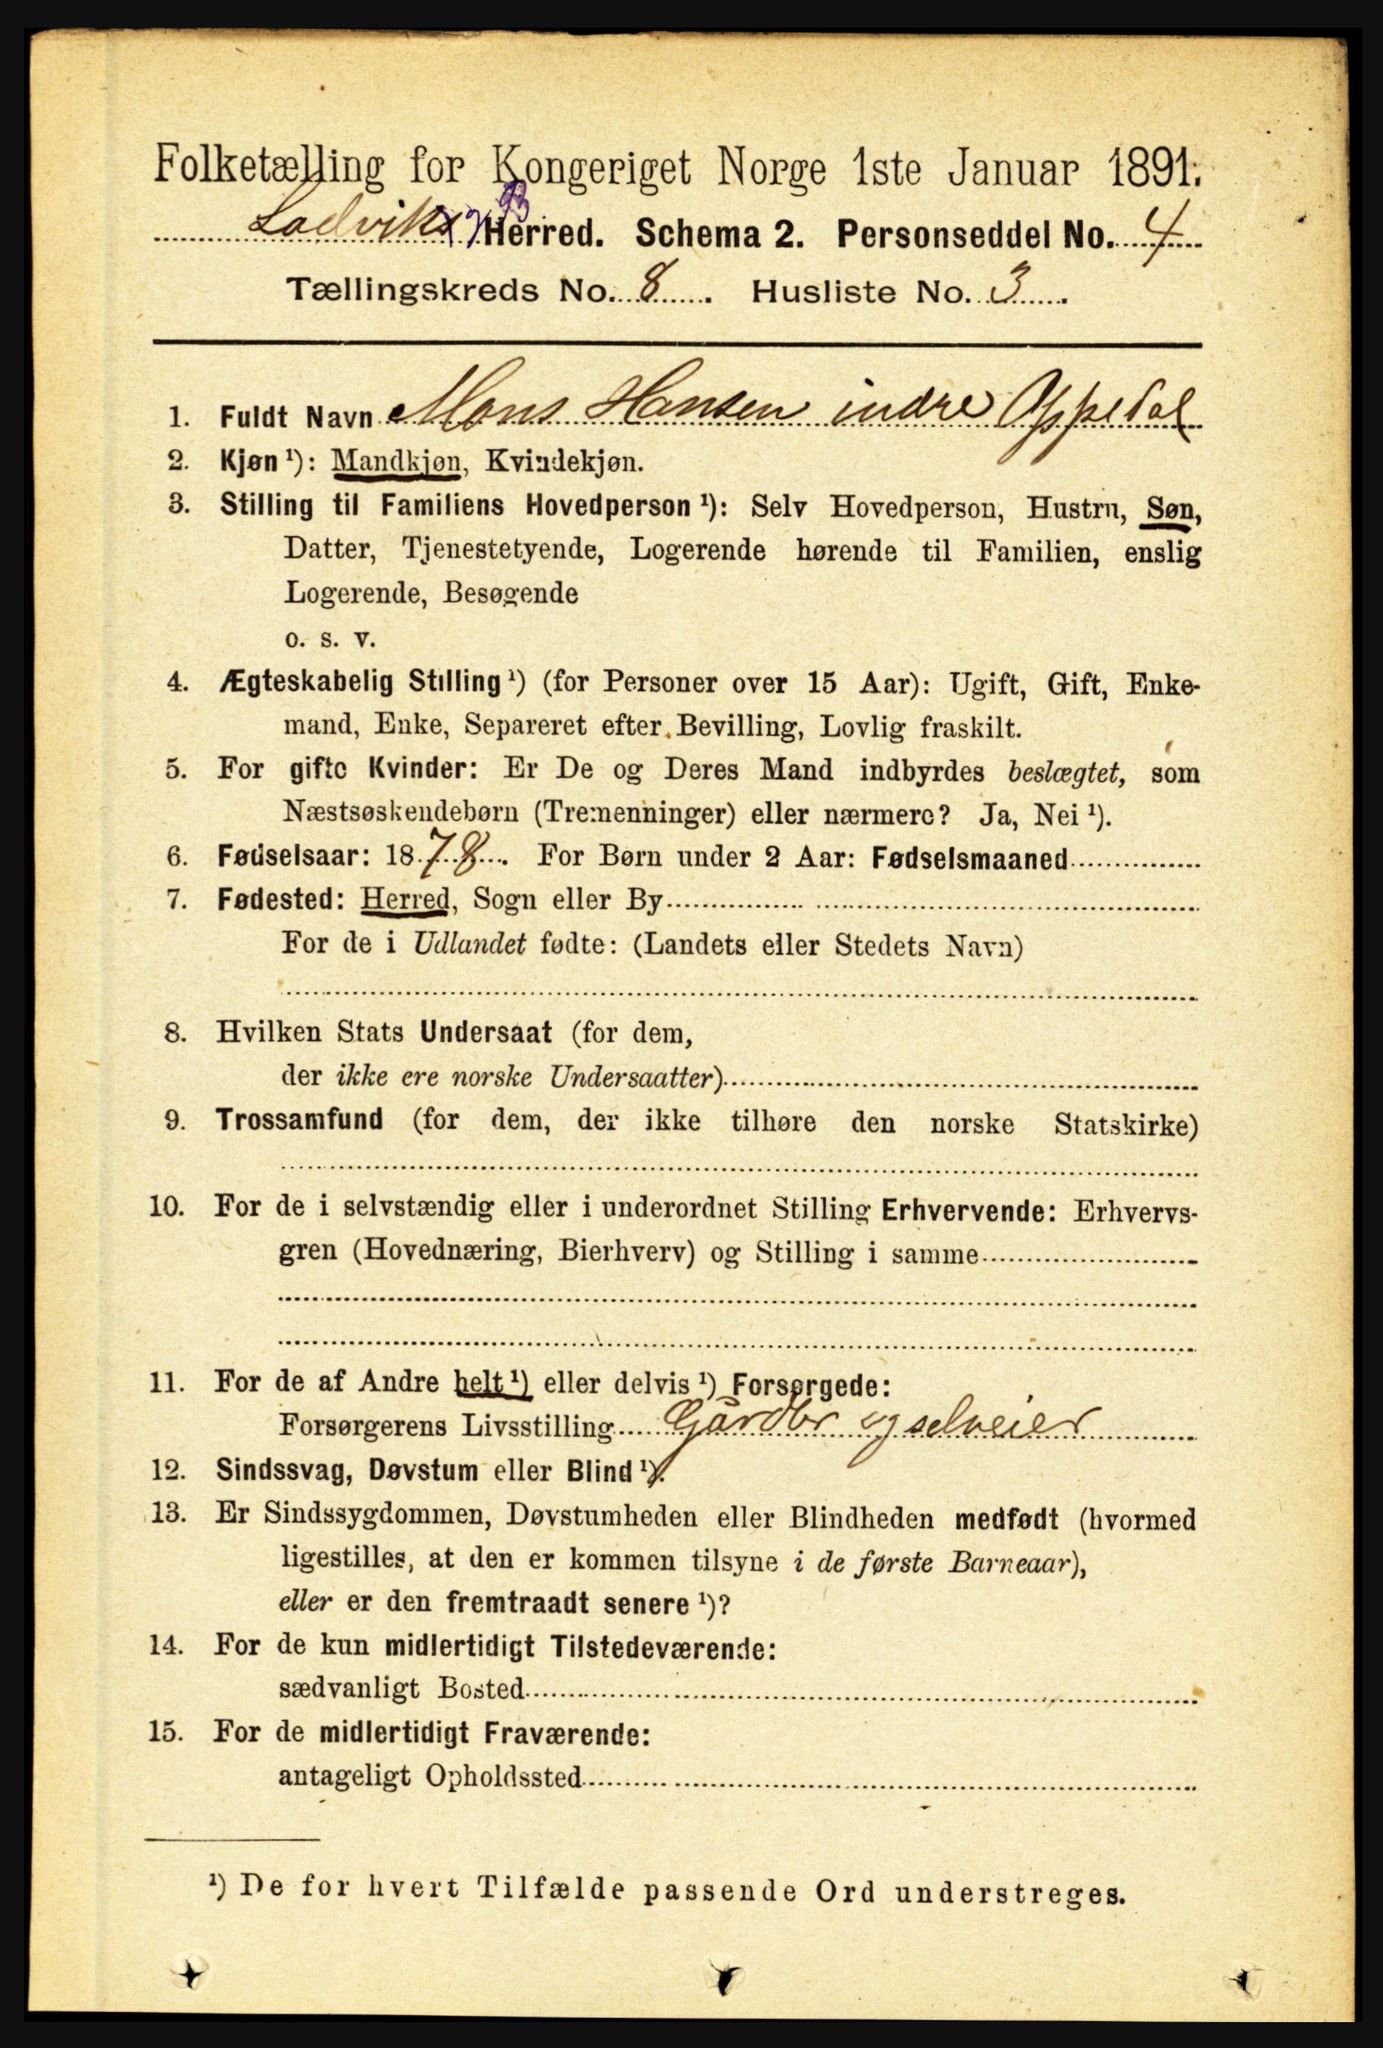 Folketælling for Kongeriget Norge 1ste Januar 1891.
Ladviks Herred. Schema 2. Personseddel No. 4
Tællingskreds No. 8. Husliste No. 3.
1. Fuldt Navn Mons Hansen indre Oppedal
2. Kjøn ¹): Mandkjøn, Kvindekjøn.
3. Stilling til Familiens Hovedperson ¹): Selv Hovedperson, Hustru, Søn,
Datter, Tjenestetyende, Logerende hørende til Familien, enslig
Logerende, Besøgende
o. s. v.
4. Ægteskabelig Stilling ¹) (for Personer over 15 Aar): Ugift, Gift, Enke-
mand, Enke, Separeret efter Bevilling, Lovlig fraskilt.
5. For gifte Kvinder: Er De og Deres Mand indbyrdes beslægtet, som
Næstsøskendebørn (Tremenninger) eller nærmere? Ja, Nei ¹).
6. Fødselsaar: 1878. For Børn under 2 Aar: Fødselsmaaned
7. Fødested: Herred, Sogn eller By
For de i Udlandet fødte: (Landets eller Stedets Navn)
8. Hvilken Stats Undersaat (for dem,
der ikke ere norske Undersaatter)
9. Trossamfund (for dem, der ikke tilhøre den norske Statskirke)
10. For de i selvstændig eller i underordnet Stilling Erhvervende: Erhvervs-
gren (Hovednæring, Bierhverv) og Stilling i samme
11. For de af Andre helt ¹) eller delvis ¹) Forsørgede:
Forsørgerens Livsstilling Gårdbr og selveier
12. Sindssvag, Døvstum eller Blind ¹).
13. Er Sindssygdommen, Døvstumheden eller Blindheden medfødt (hvormed
ligestilles, at den er kommen tilsyne i de første Barneaar),
eller er den fremtraadt senere ¹)?
14. For de kun midlertidigt Tilstedeværende:
sædvanligt Bosted
15. For de midlertidigt Fraværende:
antageligt Opholdssted
¹) De for hvert Tilfælde passende Ord understreges.